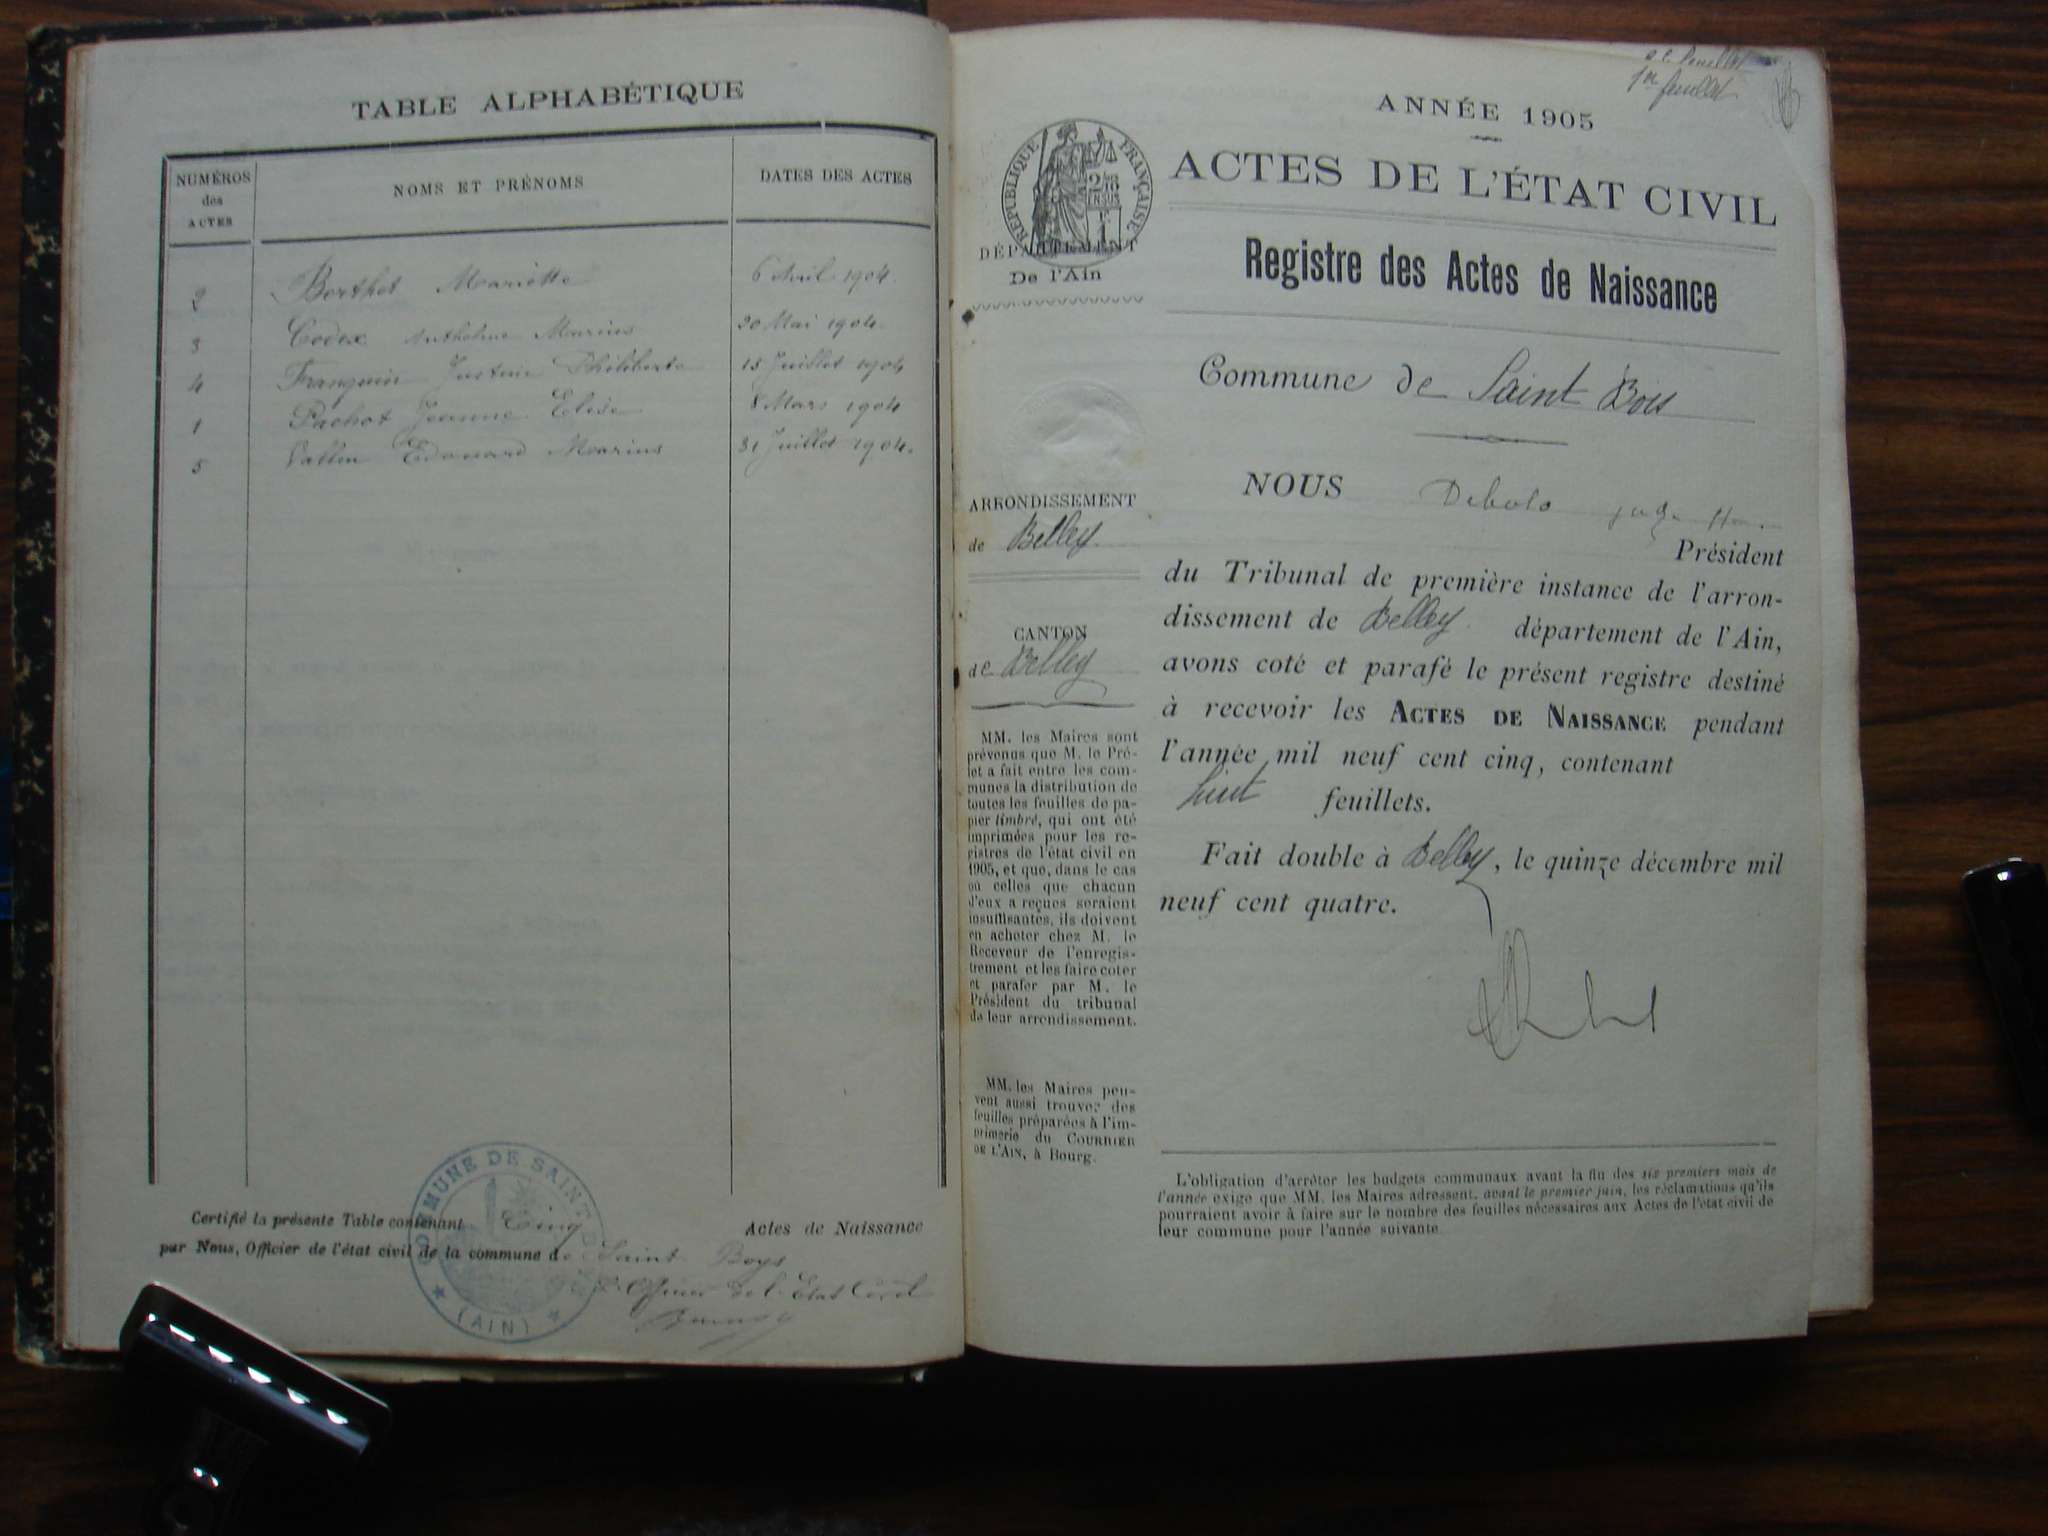 TABLE ALPHABÉTIQUE
NUMÉROS
des
ACTES
NOMS ET PRÉNOMS
DATES DES ACTES
2 Berthet Mariette 6 Avril 1904.
3 Codex Anthelme Marius 20 Mai 1904.
4 Franquin Justine Philiberte 15 Juillet 1904
1 Pachot Jeanne Elise 8 Mars 1904
5 Vallin Edouard Marius 31 Juillet 1904.
Certifié la présente Table contenant Cinq Actes de Naissance
par Nous, Officier de l'état civil de la commune de Saint Boys
L'Officier de l'Etat Civil
COMMUNE DE SAINT
(AIN)
1er feuillet
ANNÉE 1905
ACTES DE L'ÉTAT CIVIL
RÉPUBLIQUE FRANÇAISE
DÉPARTEMENT
De l'Ain
Registre des Actes de Naissance
Commune de Saint Bois
ARRONDISSEMENT
de Belley
CANTON
de Belley
MM. les Maires sont
prévenus que M. le Pré-
fet a fait entre les com-
munes la distribution de
toutes les feuilles de pa-
pier timbré, qui ont été
imprimées pour les re-
gistres de l'état civil en
1905, et que, dans le cas
où celles que chacun
d'eux a reçues seraient
insuffisantes, ils doivent
en acheter chez M. le
Receveur de l'enregis-
trement et les faire coter
et parafer par M. le
Président du tribunal
de leur arrondissement.
MM. les Maires peu-
vent aussi trouver des
feuilles préparées à l'im-
primerie du COURRIER
DE L'AIN, à Bourg.
NOUS juge
Président
du Tribunal de première instance de l'arron-
dissement de Belley département de l'Ain,
avons coté et parafé le présent registre destiné
à recevoir les ACTES DE NAISSANCE pendant
l'année mil neuf cent cinq, contenant
huit feuillets.
Fait double à Belley, le quinze décembre mil
neuf cent quatre.
L'obligation d'arrêter les budgets communaux avant la fin des six premiers mois de
l'année exige que MM. les Maires adressent, avant le premier juin, les réclamations qu'ils
pourraient avoir à faire sur le nombre des feuilles nécessaires aux Actes de l'état civil de
leur commune pour l'année suivante.